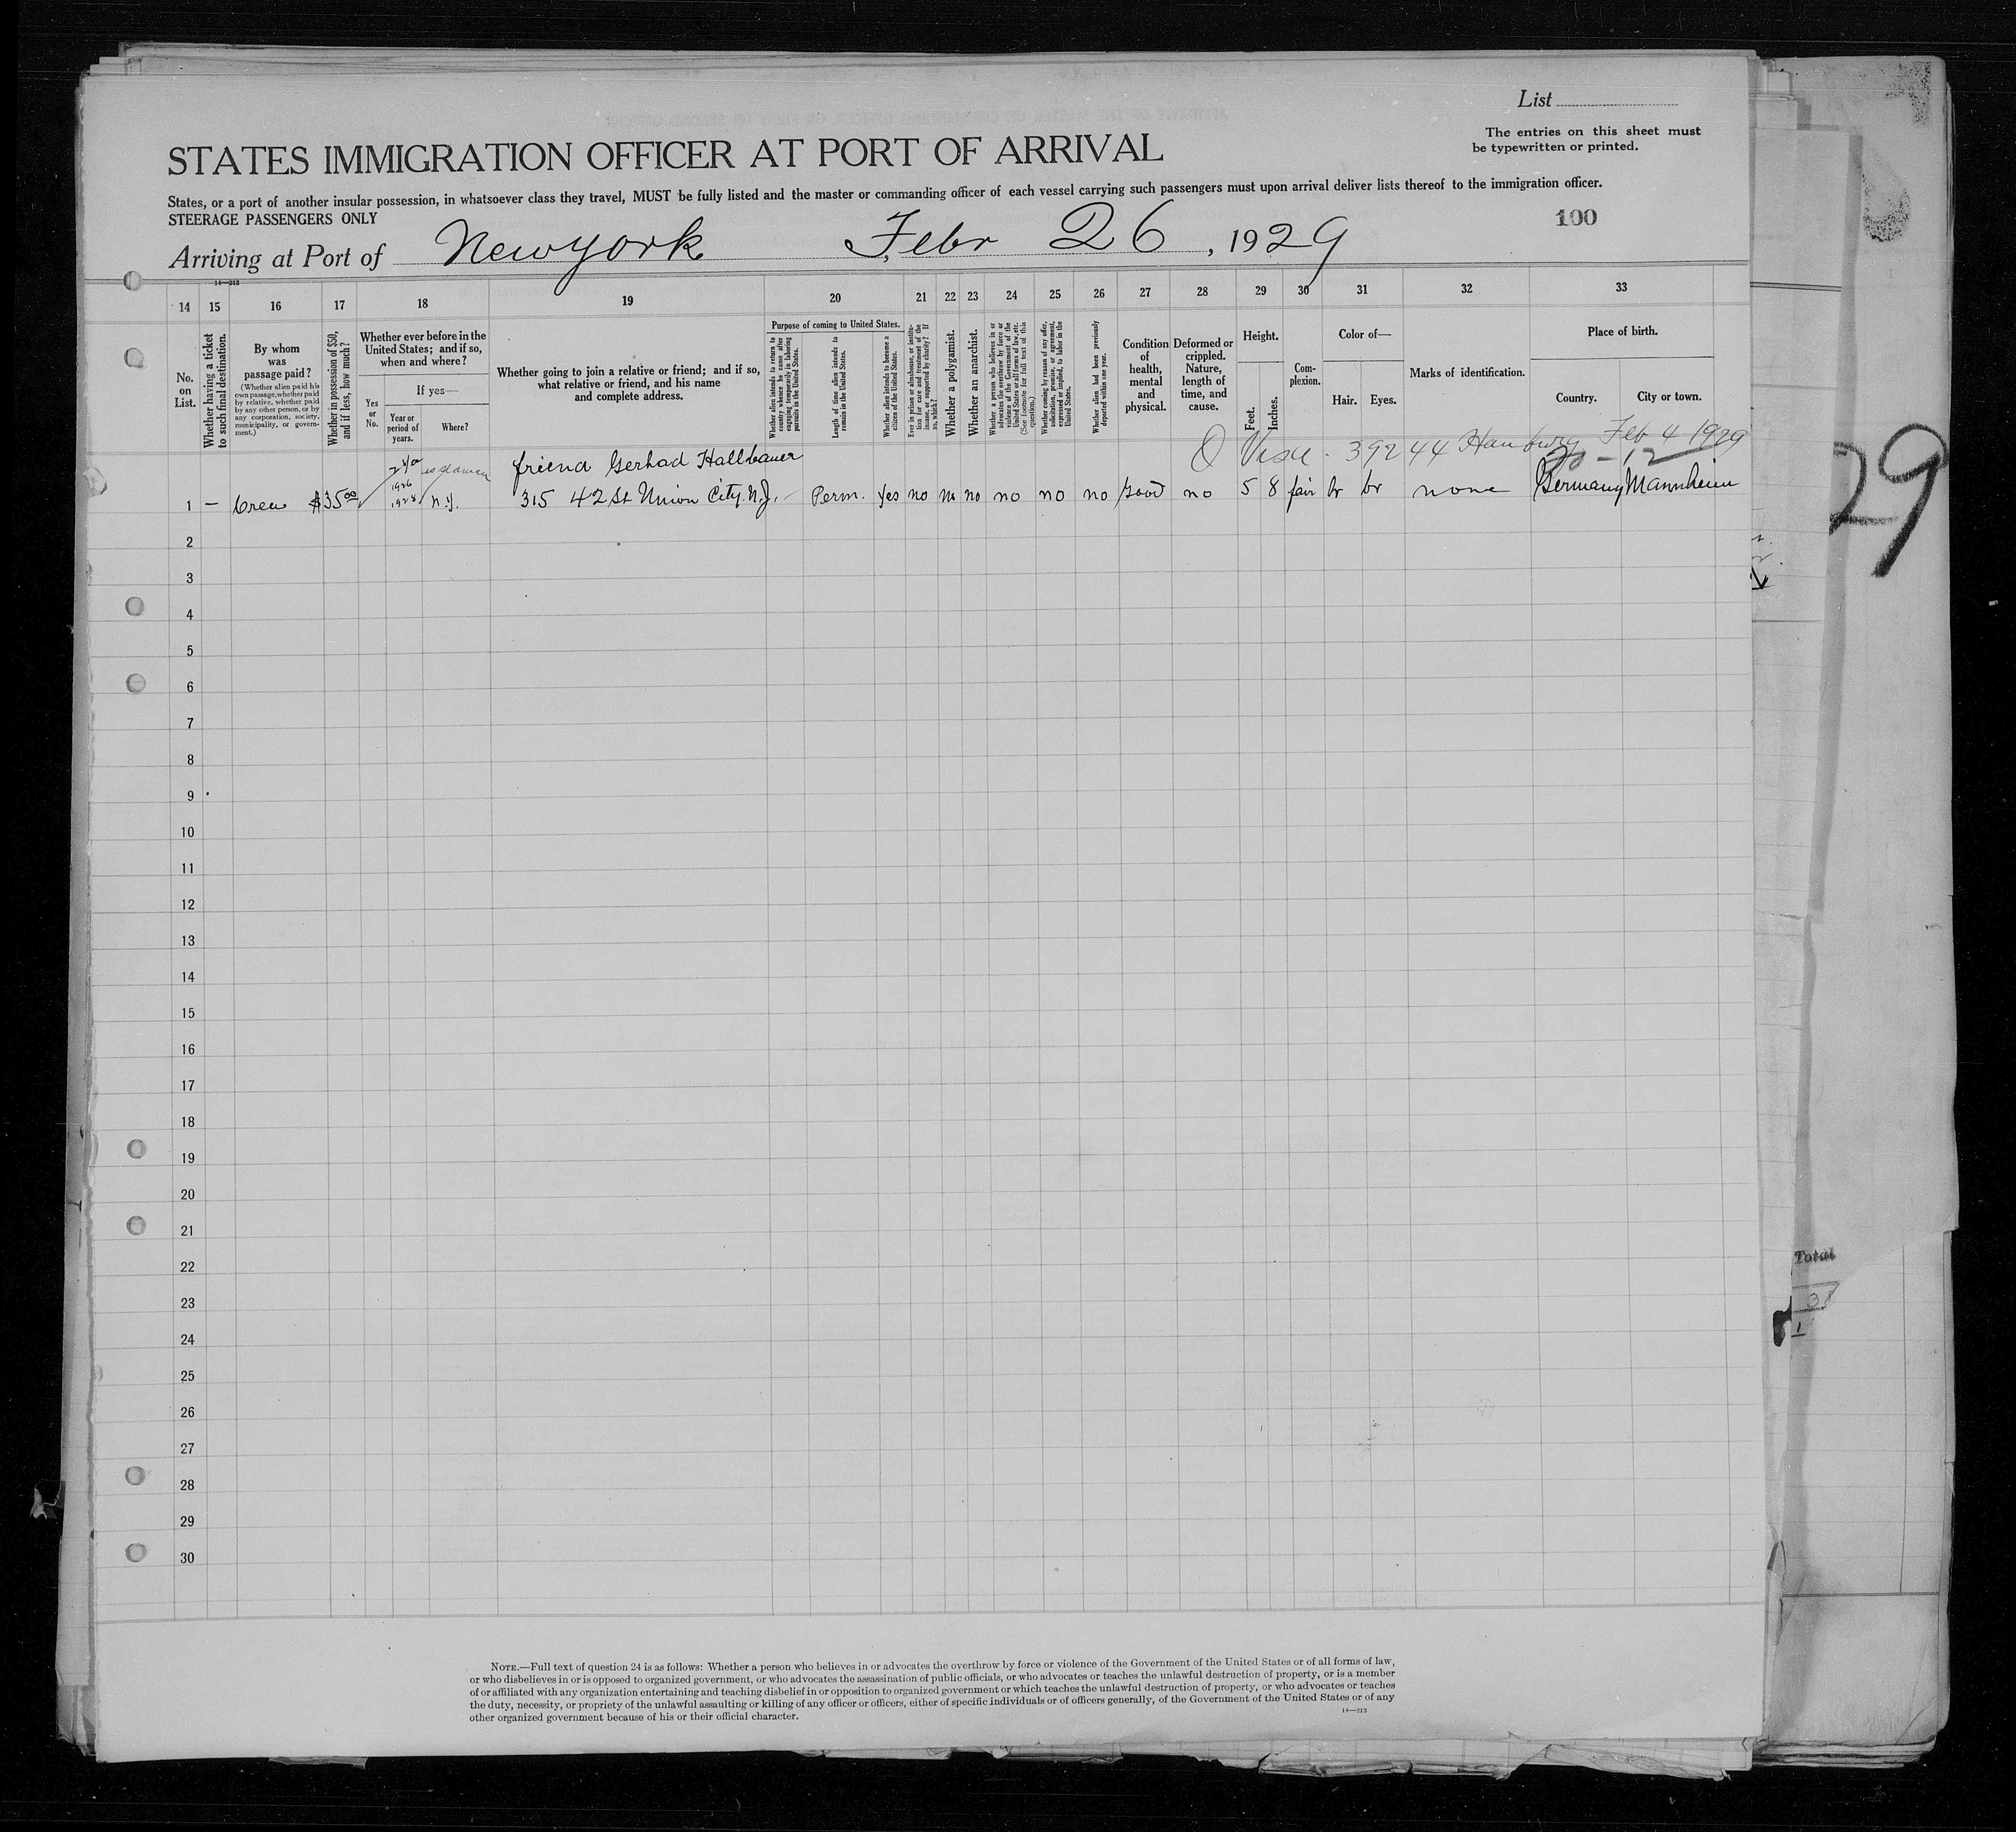 List
The entries on this sheet must
be typewritten or printed.
STATES IMMIGRATION OFFICER AT PORT OF ARRIVAL
States, or a port of another insular possession, in whatsoever class they travel, MUST be fully listed and the master or commanding officer of each vessel carrying such passengers must upon arrival deliver lists thereof to the immigration officer.
STEERAGE PASSENGERS ONLY
100
Arriving at Port of New york Febr 26, 1929
14—213
14 15 16 17 18 19 20 21 22 23 24 25 26 27 28 29 30 31 32 33
No. on List.
Whether having a ticket to such final destination.
By whom was passage paid?
(Whether alien paid his own passage, whether paid by relative, whether paid by any other person, or by any corporation, society, municipality, or government.)
Whether in possession of $50, and if less, how much?
Whether ever before in the United States; and if so, when and where?
Yes or No.
If yes—
Year or period of years.
Where?
Whether going to join a relative or friend; and if so, what relative or friend, and his name and complete address.
Purpose of coming to United States.
Whether alien intends to return to country whence he came after engaging temporarily in laboring pursuits in the United States.
Length of time alien intends to remain in the United States.
Whether alien intends to become a citizen of the United States.
Ever in prison or almshouse, or institution for care and treatment of the insane, or supported by charity? If so, which?
Whether a polygamist.
Whether an anarchist.
Whether a person who believes in or advocates the overthrow by force or violence of the Government of the United States or all forms of law, etc. (See footnote for full text of this question.)
Whether coming by reason of any offer, solicitation, promise, or agreement, expressed or implied, to labor in the United States.
Whether alien had been previously deported within one year.
Condition of health, mental and physical.
Deformed or crippled. Nature, length of time, and cause.
Height.
Feet.
Inches.
Complexion.
Color of—
Hair.
Eyes.
Marks of identification.
Place of birth.
Country.
City or town.
Q Visa - 39244 Hamburg Feb 4 1929
friend Gerhad Hallbauer
1926
1 — Crew $35.00 1928 N.Y. 315 42 St Union City. N.J. — Perm. yes no no no no no no good no 5 8 fair br br none Germany Mannheim
2
3
4
5
6
7
8
9
10
11
12
13
14
15
16
17
18
19
20
21
22
23
24
25
26
27
28
29
30
29
Total
NOTE.—Full text of question 24 is as follows: Whether a person who believes in or advocates the overthrow by force or violence of the Government of the United States or of all forms of law,
or who disbelieves in or is opposed to organized government, or who advocates the assassination of public officials, or who advocates or teaches the unlawful destruction of property, or is a member
of or affiliated with any organization entertaining and teaching disbelief in or opposition to organized government or which teaches the unlawful destruction of property, or who advocates or teaches
the duty, necessity, or propriety of the unlawful assaulting or killing of any officer or officers, either of specific individuals or of officers generally, of the Government of the United States or of any
other organized government because of his or their official character.
14—213